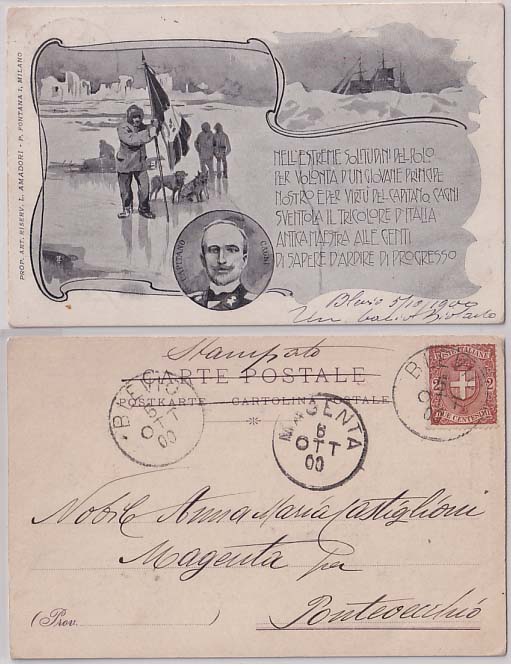 PROP. ART. RISERV. L. AMADORI - P. FONTANA 1, MILANO
NELL'ESTREME SOLITUDINI DEL POLO
PER VOLONTÀ D'UN GIOVANE PRINCIPE
NOSTRO E PER VIRTÙ DEL CAPITANO CAGNI
SVENTOLA IL TRICOLORE D'ITALIA
ANTICA MAESTRA ALLE GENTI
DI SAPERE D'ARDIRE DI PROGRESSO
CAPITANO CAGNI
Blevio 5/10 1900
Un
Stampato
CARTE POSTALE
POSTKARTE CARTOLINA POSTALE
BLEVIO
6
OTT
00
MAGENTA
6
OTT
00
POSTE ITALIANE
2 2
DUE CENTESIMI
Nobile Anna Maria Castiglioni
Magenta per
Pontevecchio
(Prov. )